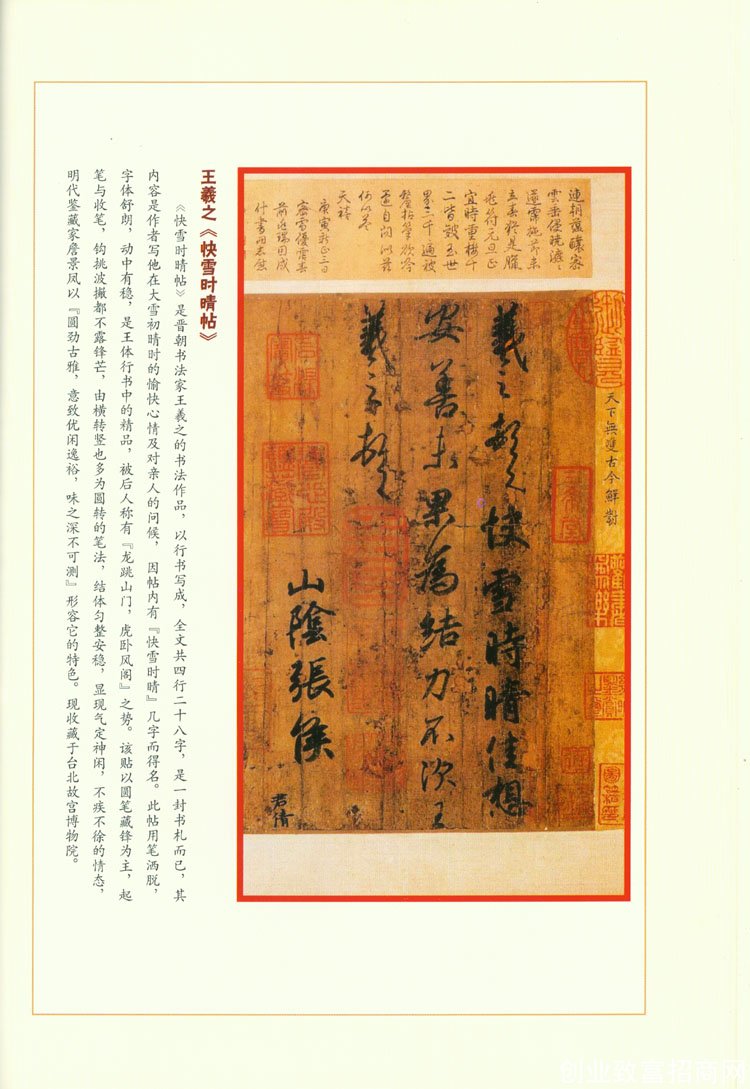 連朝蘊釀寒
庚寅新正三日
天下無雙古今鮮對
羲之頓首快雪時晴佳想
安善未果為結力不次王
羲之頓首
山陰張侯
君倩
王羲之《快雪时晴帖》
《快雪时晴帖》是晋朝书法家王羲之的书法作品，以行书写成，全文共四行二十八字，是一封书札而已，其
内容是作者写他在大雪初晴时的愉快心情及对亲人的问候，因帖内有『快雪时晴』几字而得名。此帖用笔洒脱，
字体舒朗，动中有稳，是王体行书中的精品，被后人称有『龙跳山门，虎卧风阁』之势。该贴以圆笔藏锋为主，起
笔与收笔，钩挑波撇都不露锋芒，由横转竖也多为圆转的笔法，结体匀整安稳，显现气定神闲，不疾不徐的情态，
明代鉴藏家詹景凤以『圆劲古雅，意致优闲逸裕，味之深不可测』形容它的特色。现收藏于台北故宫博物院。
创业致富招商网